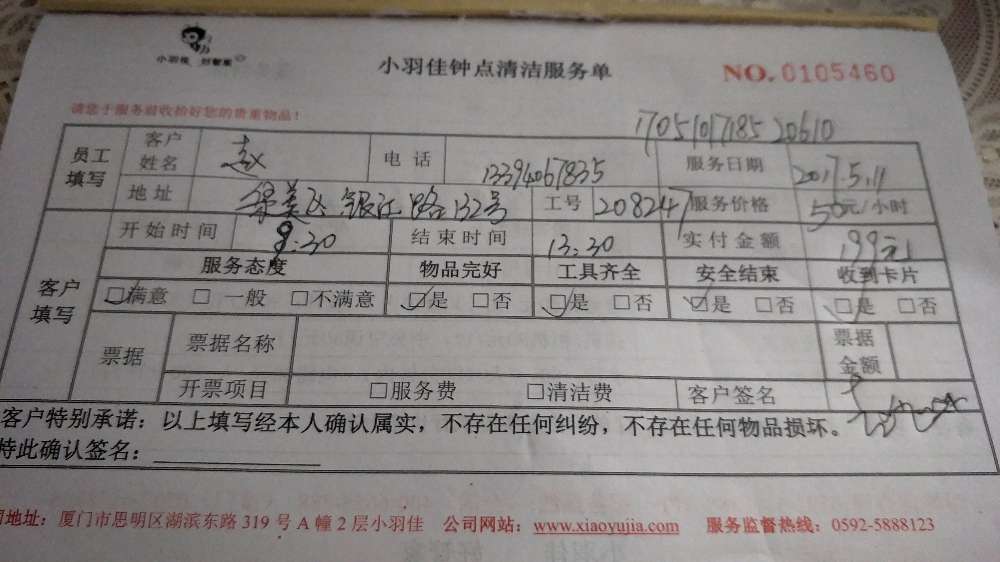 小羽佳 好管家
小羽佳钟点清洁服务单
NO.0105460
请您于服务前收拾好您的贵重物品！
17051017185 20610
员工填写 客户姓名 赵 电话 13394067835 服务日期 2017.5.11
地址 银江路132号 工号 208247 服务价格 50元/小时
客户填写 开始时间 9:30 结束时间 13:30 实付金额 199元
服务态度 物品完好 工具齐全 安全结束 收到卡片
☑满意 □一般 □不满意 ☑是 □否 ☑是 □否 ☑是 □否 ☑是 □否
票据 票据名称 票据金额
开票项目 □服务费 □清洁费 客户签名
客户特别承诺：以上填写经本人确认属实，不存在任何纠纷，不存在任何物品损坏。
特此确认签名：
地址：厦门市思明区湖滨东路319号A幢2层小羽佳 公司网站：www.xiaoyujia.com 服务监督热线：0592-5888123